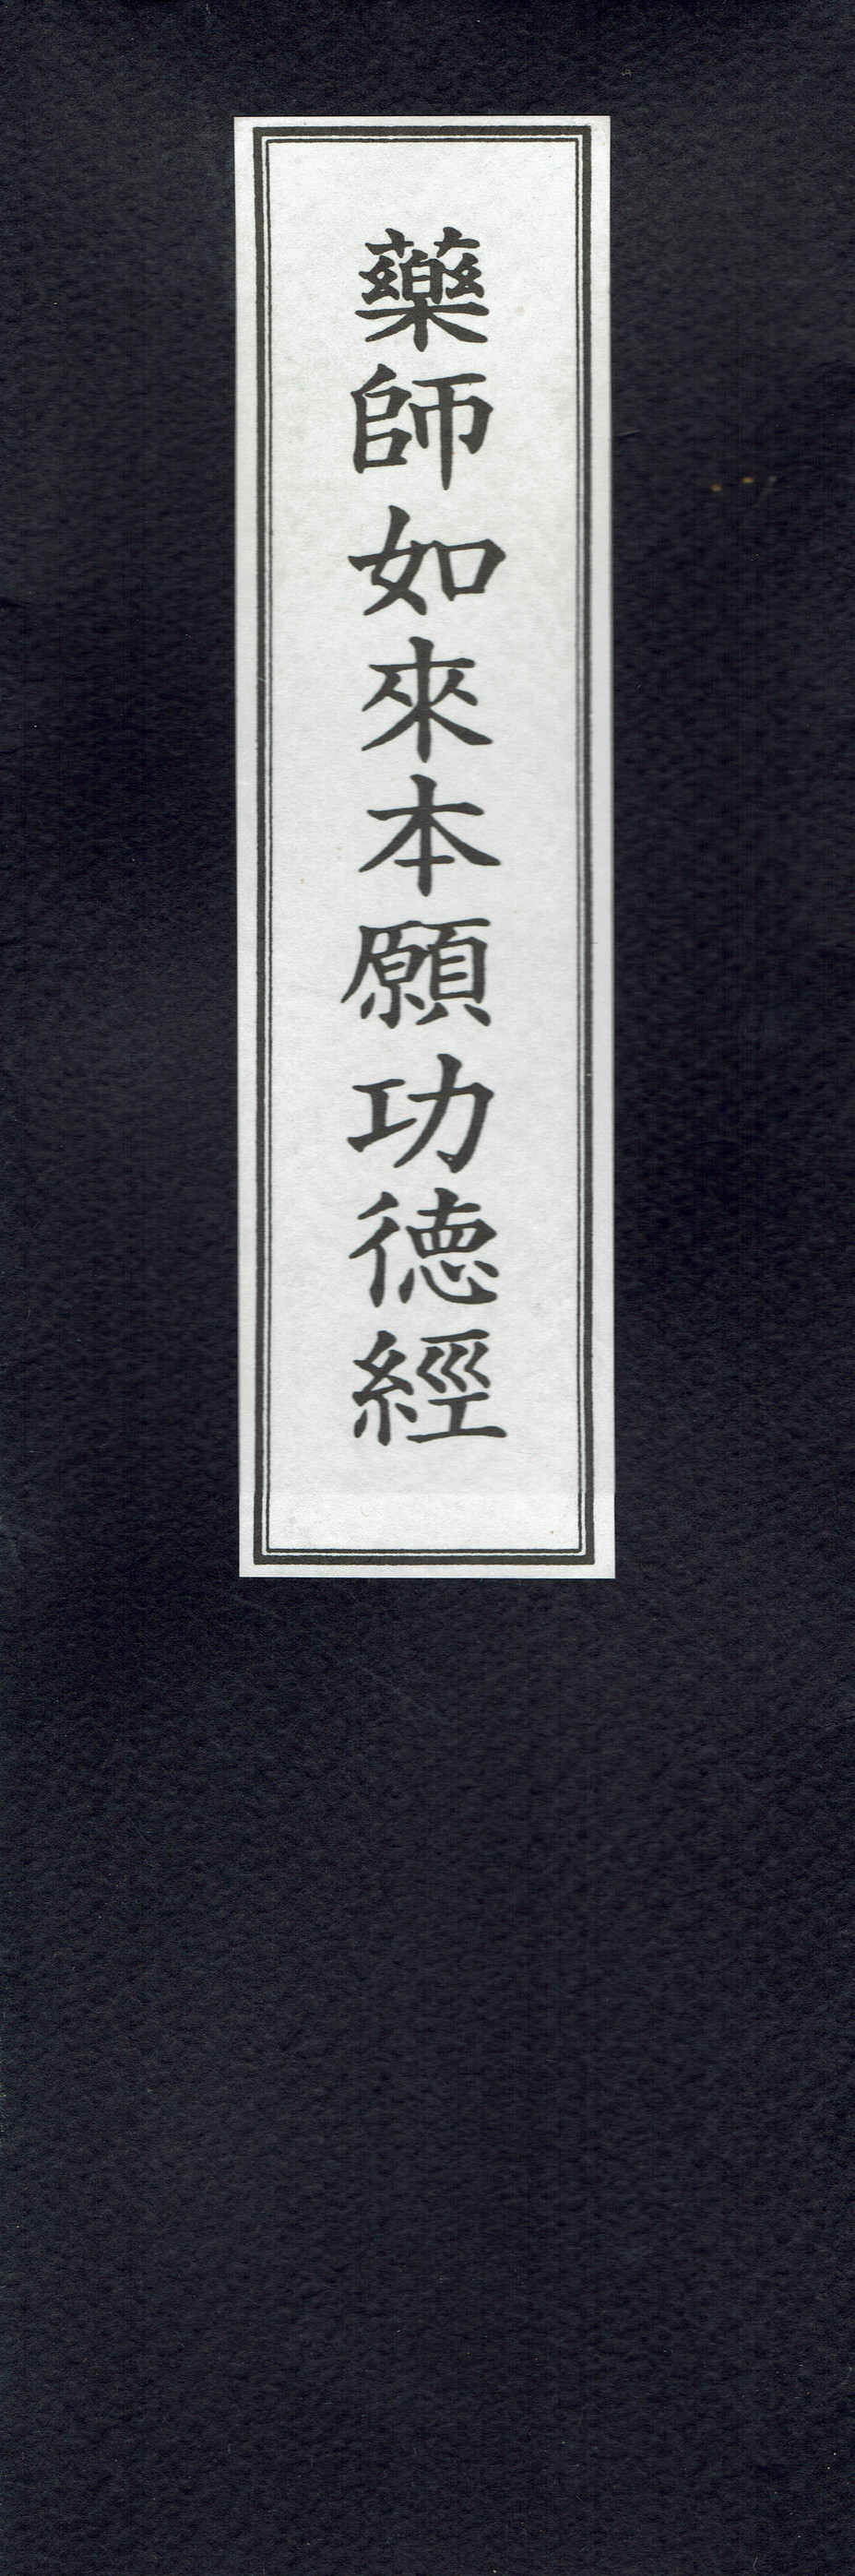 藥師如來本願功徳經